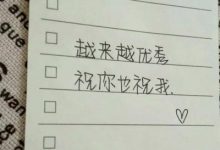 越来越优秀
祝你也祝我.